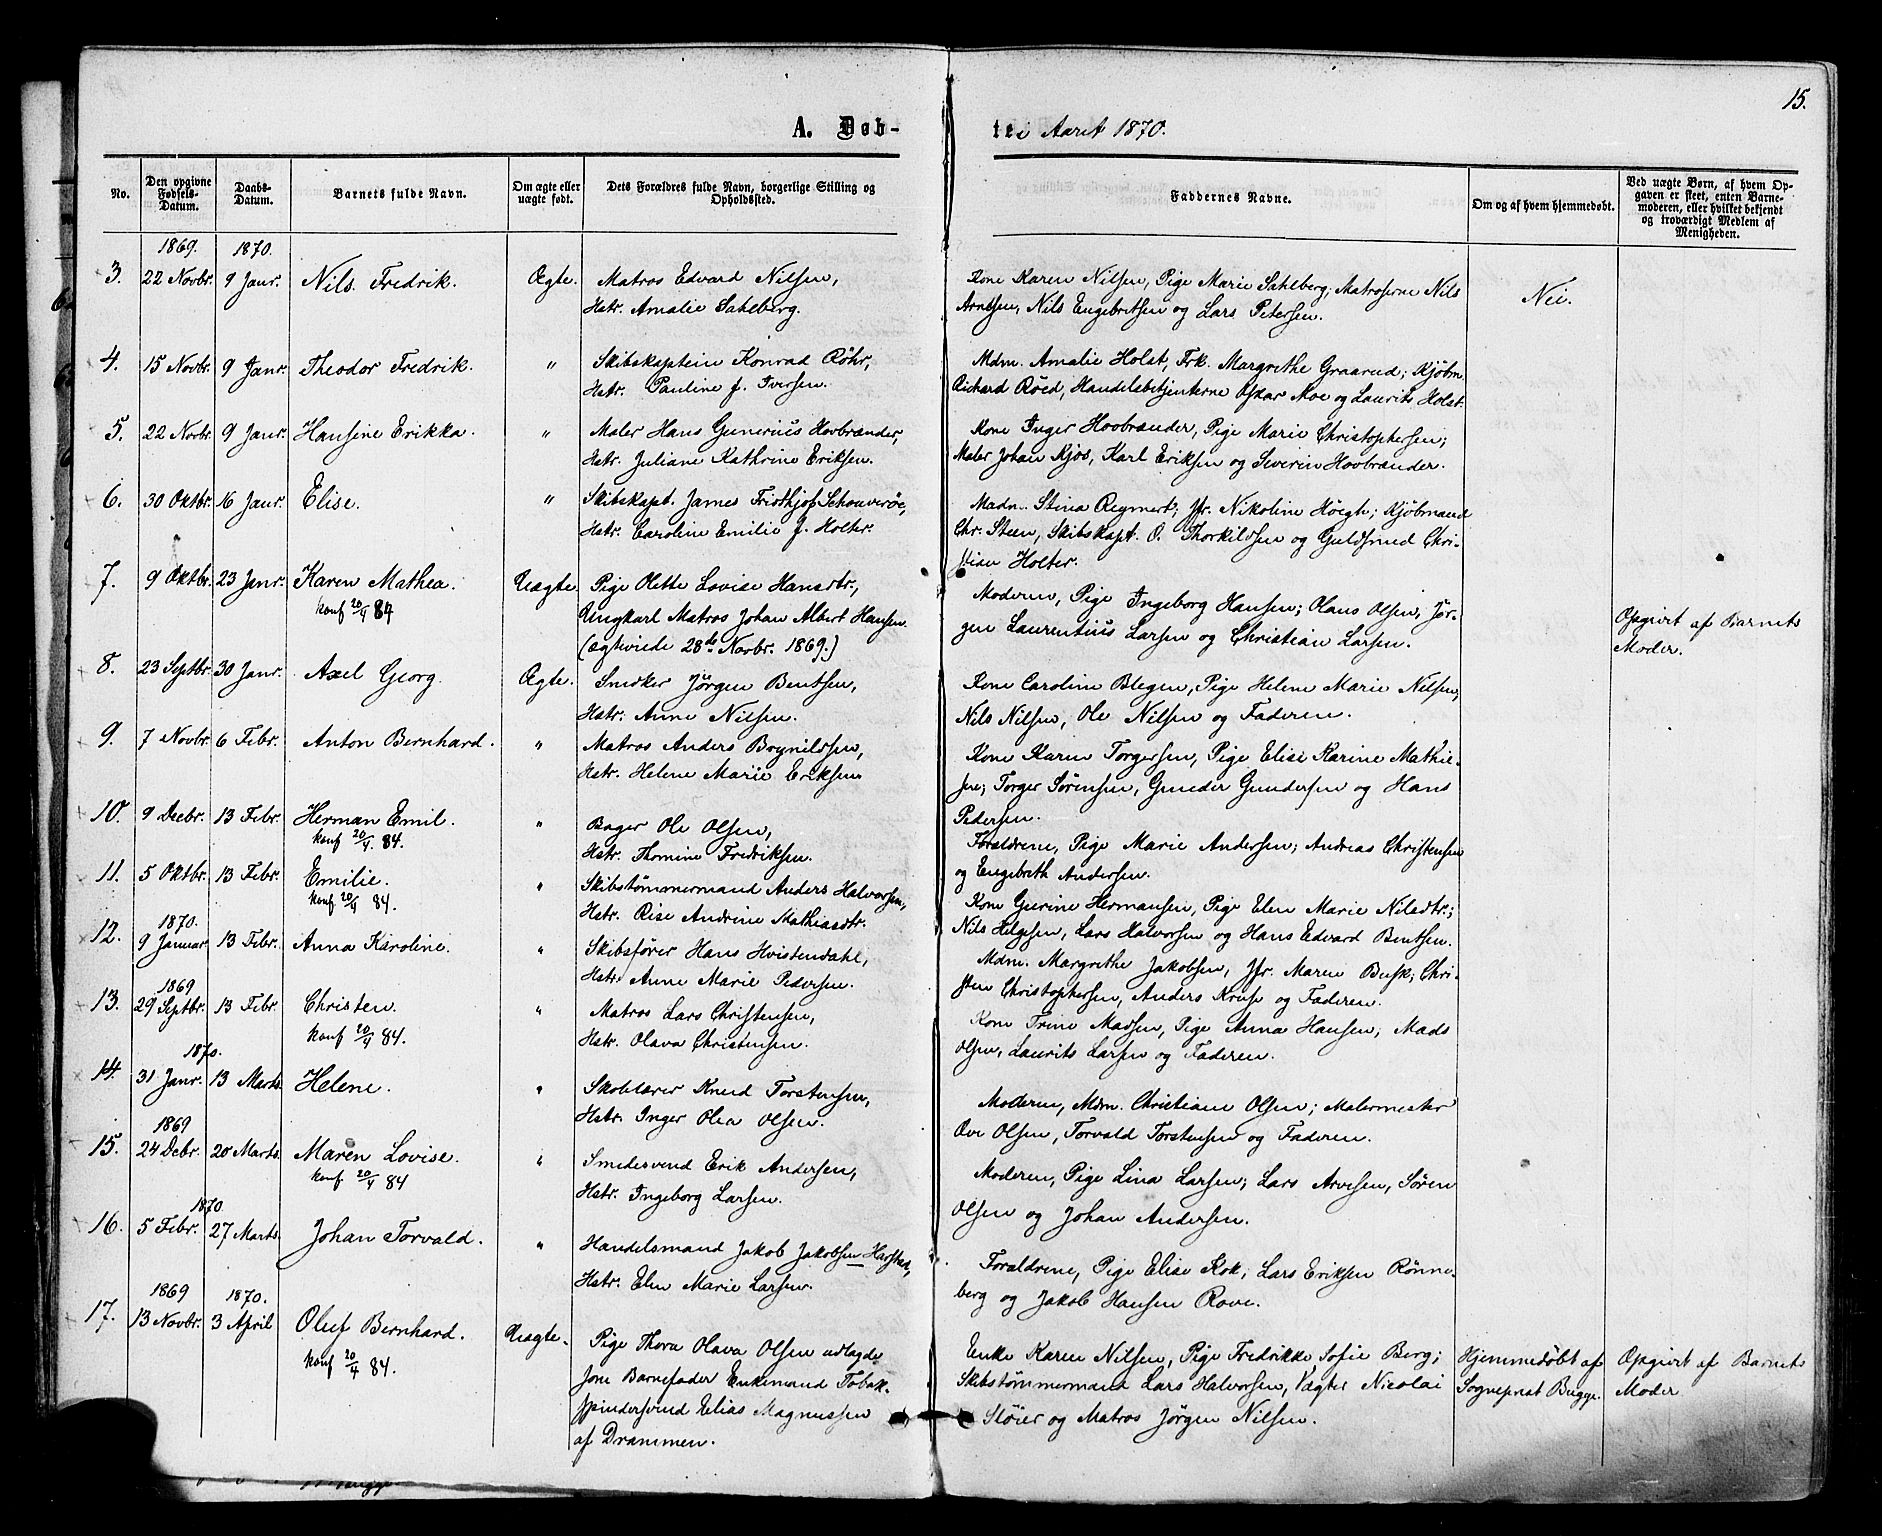 15.
A. Døb-
te i Aaret 1870.
No.
Den opgivne Fødsels-Datum.
Daabs-Datum.
Barnets fulde Navn.
Om ægte eller uægte født.
Dets Forældres fulde Navn, borgerlige Stilling og Opholdssted.
Faddernes Navne.
Om og af hvem hjemmedøbt.
Ved uægte Børn, af hvem Opgaven er skeet, enten Barnemoderen, eller hvilket bekjendt og troværdigt Medlem af Menigheden.
1869. 1870.
3. 22 Novbr. 9 Janr. Nils Fredrik. Ægte. Matros Edvard Nilsen,
Hstr. Amalie Sahlberg.
Kone Karen Nilsen, Pige Marie Sahlberg; Matroserne Nils
Arntsen, Nils Engebritsen og Lars Petersen.
Nei.
4. 15 Novbr. 9 Janr. Theodor Fredrik. " Skibskaptein Konrad Røhr,
Hstr. Pauline f. Iversen.
Mdm. Amalie Holst, Frk. Margrethe Graarud; Kjøbm.
Richard Røed, Handelsbetjenterne Oskar Moe og Laurits Holst.
5. 22 Novbr. 9 Janr. Hansine Erikka. " Maler Hans Gunerius Hovbrænder,
Hstr. Juliane Kathrine Eriksen.
Kone Inger Hovbrænder, Pige Marie Christophersen;
Maler Johan Kjøs, Karl Eriksen og Severin Hovbrænder.
6. 30 Oktbr. 16 Janr. Elise. " Skibskapt. James Fristhjof Schouverøe,
Hstr. Caroline Emilie f. Holter.
Madm. Stina Regmert; Jfr. Nikoline Høegh; Kjøbmand
Chr. Steen, Skibskapt. O. Thorkildsen og Guldsmed Chri-
stian Holter.
7. 9 Oktbr. 23 Janr. Karen Mathea. Uægte. Pige Olette Lovise Hansdtr.,
konf 20/4 84
Ungkarl Matros Johan Albert Hansen.
(ægteviede 28de Novbr. 1869.)
Moderen, Pige Ingeborg Hansen; Olaus Olsen, Jør-
gen Laurentius Larsen og Christian Larsen.
Opgivet af Barnets
Moder.
8. 23 Septbr. 30 Janr. Axel Georg. Ægte. Snedker Jørgen Bentsen,
Hstr. Anne Nilsen.
Kone Caroline Blegen, Pige Helene Marie Nilsen;
Nils Nilsen, Ole Nilsen og Faderen.
9. 7 Novbr. 6 Febr. Anton Bernhard. " Matros Anders Brynildsen,
Hstr. Helene Marie Eriksen
Kone Karen Torgersen, Pige Elise Karine Mathie-
sen; Torger Sørensen, Gunder Gundersen og Hans
Pedersen.
10. 9 Decbr. 13 Febr. Herman Emil. " Bager Ole Olsen,
konf 20/4. 84.
Hstr. Thomine Fredriksen.
Forældrene, Pige Marie Andersen; Andreas Christensen
og Engebreth Andersen.
11. 5 Oktbr. 13 Febr. Emilie. " Skibstømmermand Anders Halvorsen,
konf 20/4 84.
Hstr. Rise Andrine Mathiasdtr.
Kone Gurine Hermansen, Pige Elen Marie Nilsdtr.;
Nils Helgesen, Lars Halvorsen og Hans Edvard Bentsen.
1870.
12. 9 Januar 13 Febr. Anna Karoline. " Skibsfører Hans Hvistendahl,
Hstr. Anne Marie Pedersen.
Mdm. Margrethe Jakobsen, Jfr. Maren Busk; Chri-
sten Christophersen, Anders Kruse og Faderen.
1869
13. 29 Septbr. 13 Febr. Christen. " Matros Lars Christensen,
konf 20/4 84.
Hstr. Olava Christensen.
Kone Trine Madsen, Pige Anna Hansen; Mads
Olsen, Laurits Larsen og Faderen.
1870.
14. 31 Janr. 13 Marts. Helene. " Skolelærer Knud Torstensen,
Hstr. Inger Olea Olsen.
Moderen, Mdm. Christiane Olsen; Malermester
Ove Olsen, Torvald Torstensen og Faderen.
1869
15. 24 Debr. 20 Marts. Maren Lovise. " Smedesvend Erik Andersen,
konf 20/4 84
Hstr. Ingeborg Larsen.
Moderen, Pige Lina Larsen; Lars Arvesen, Søren
Olsen og Johan Andersen.
1870
16. 5 Febr. 27 Marts. Johan Torvald. " Handelsmand Jakob Jakobsen Harstad,
Hstr. Elen Marie Larsen.
Forældrene, Pige Elise Rok; Lars Eriksen Rønne-
berg og Jakob Hansen Rove.
1869 1870.
17. 13 Novbr. 3 April Oluf Bernhard. Uægte. Pige Thora Olava Olsen udlagde
konf 20/4 84.
som Barnefader Enkemand Tobak-
spindersvend Elias Magnussen
af Drammen.
Enke Karen Nilsen, Pige Fredrikke Sofie Berg;
Skibstømmermand Lars Halvorsen, Vægter Nicolai
Støier og Matros Jørgen Nilsen.
Hjemmedøbt af
Sogneprest Bugge.
Opgivet af Barnets
Moder